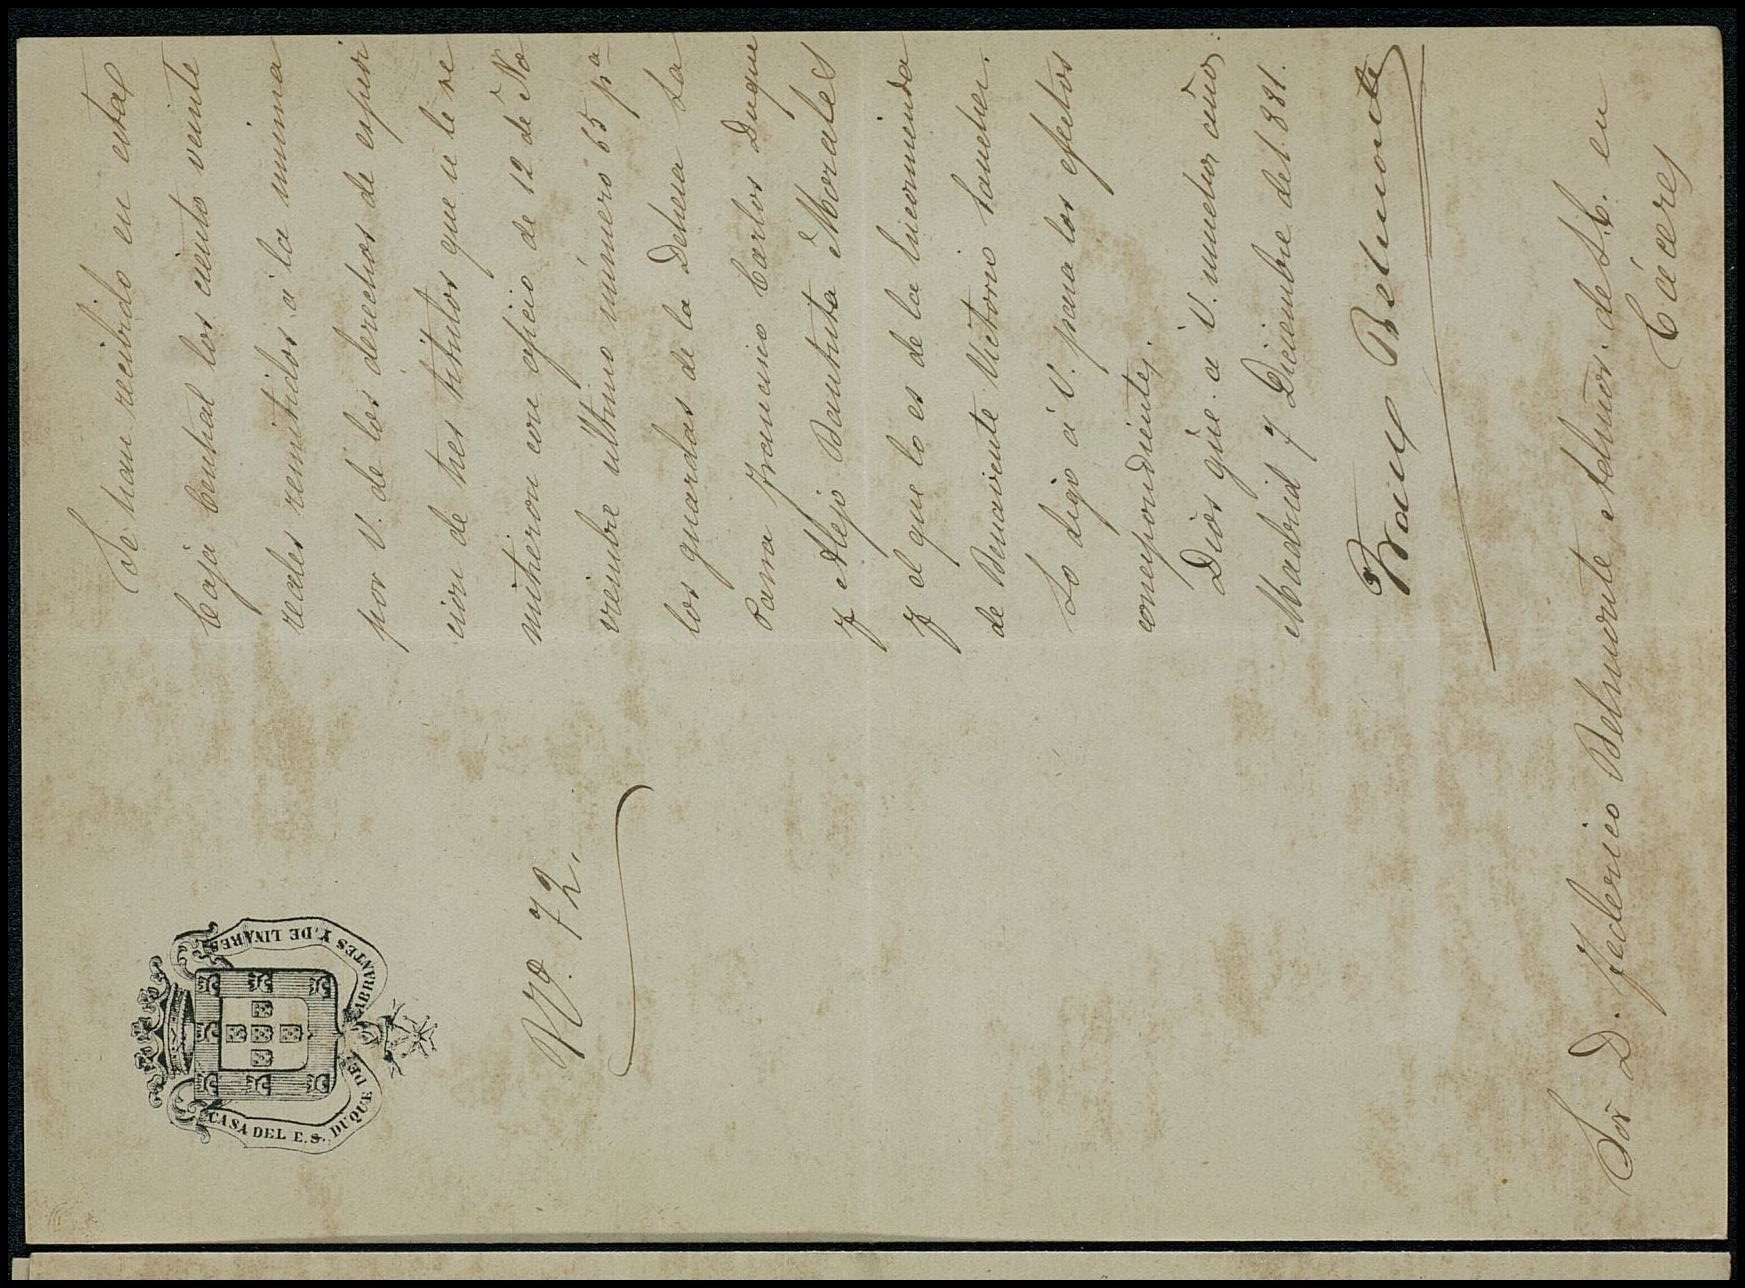 CASA DEL E.S. DUQUE DE ABRANTES Y, DE LINARES
No. 72.
Se han recibido en esta
Caja Central los ciento veinte
reales remitidos á la misma
por V. de los derechos de espedi
cion de tres titulos que se le re
mitieron con oficio de 12 de No
viembre ultimo número 65 pa
los guardas de la Dehesa La
Parra Francisco Carlos Duque
y Alejo Bautista Morales
y el que lo es de la Encomienda
de Benavente Victorio Sanchez.
Lo digo á V. para los efectos
correspondientes.
Dios gue. á V. muchos años.
Madrid 7 Diciembre de 1.881.
Belmonte
Sor. D. Federico Belmonte Admor. de S.E. en
Cáceres